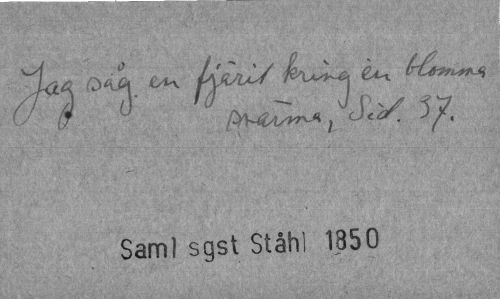 Jag såg en fjäril kring en blomma
svärma, Sid. 37.
Saml sgst Ståhl 1850